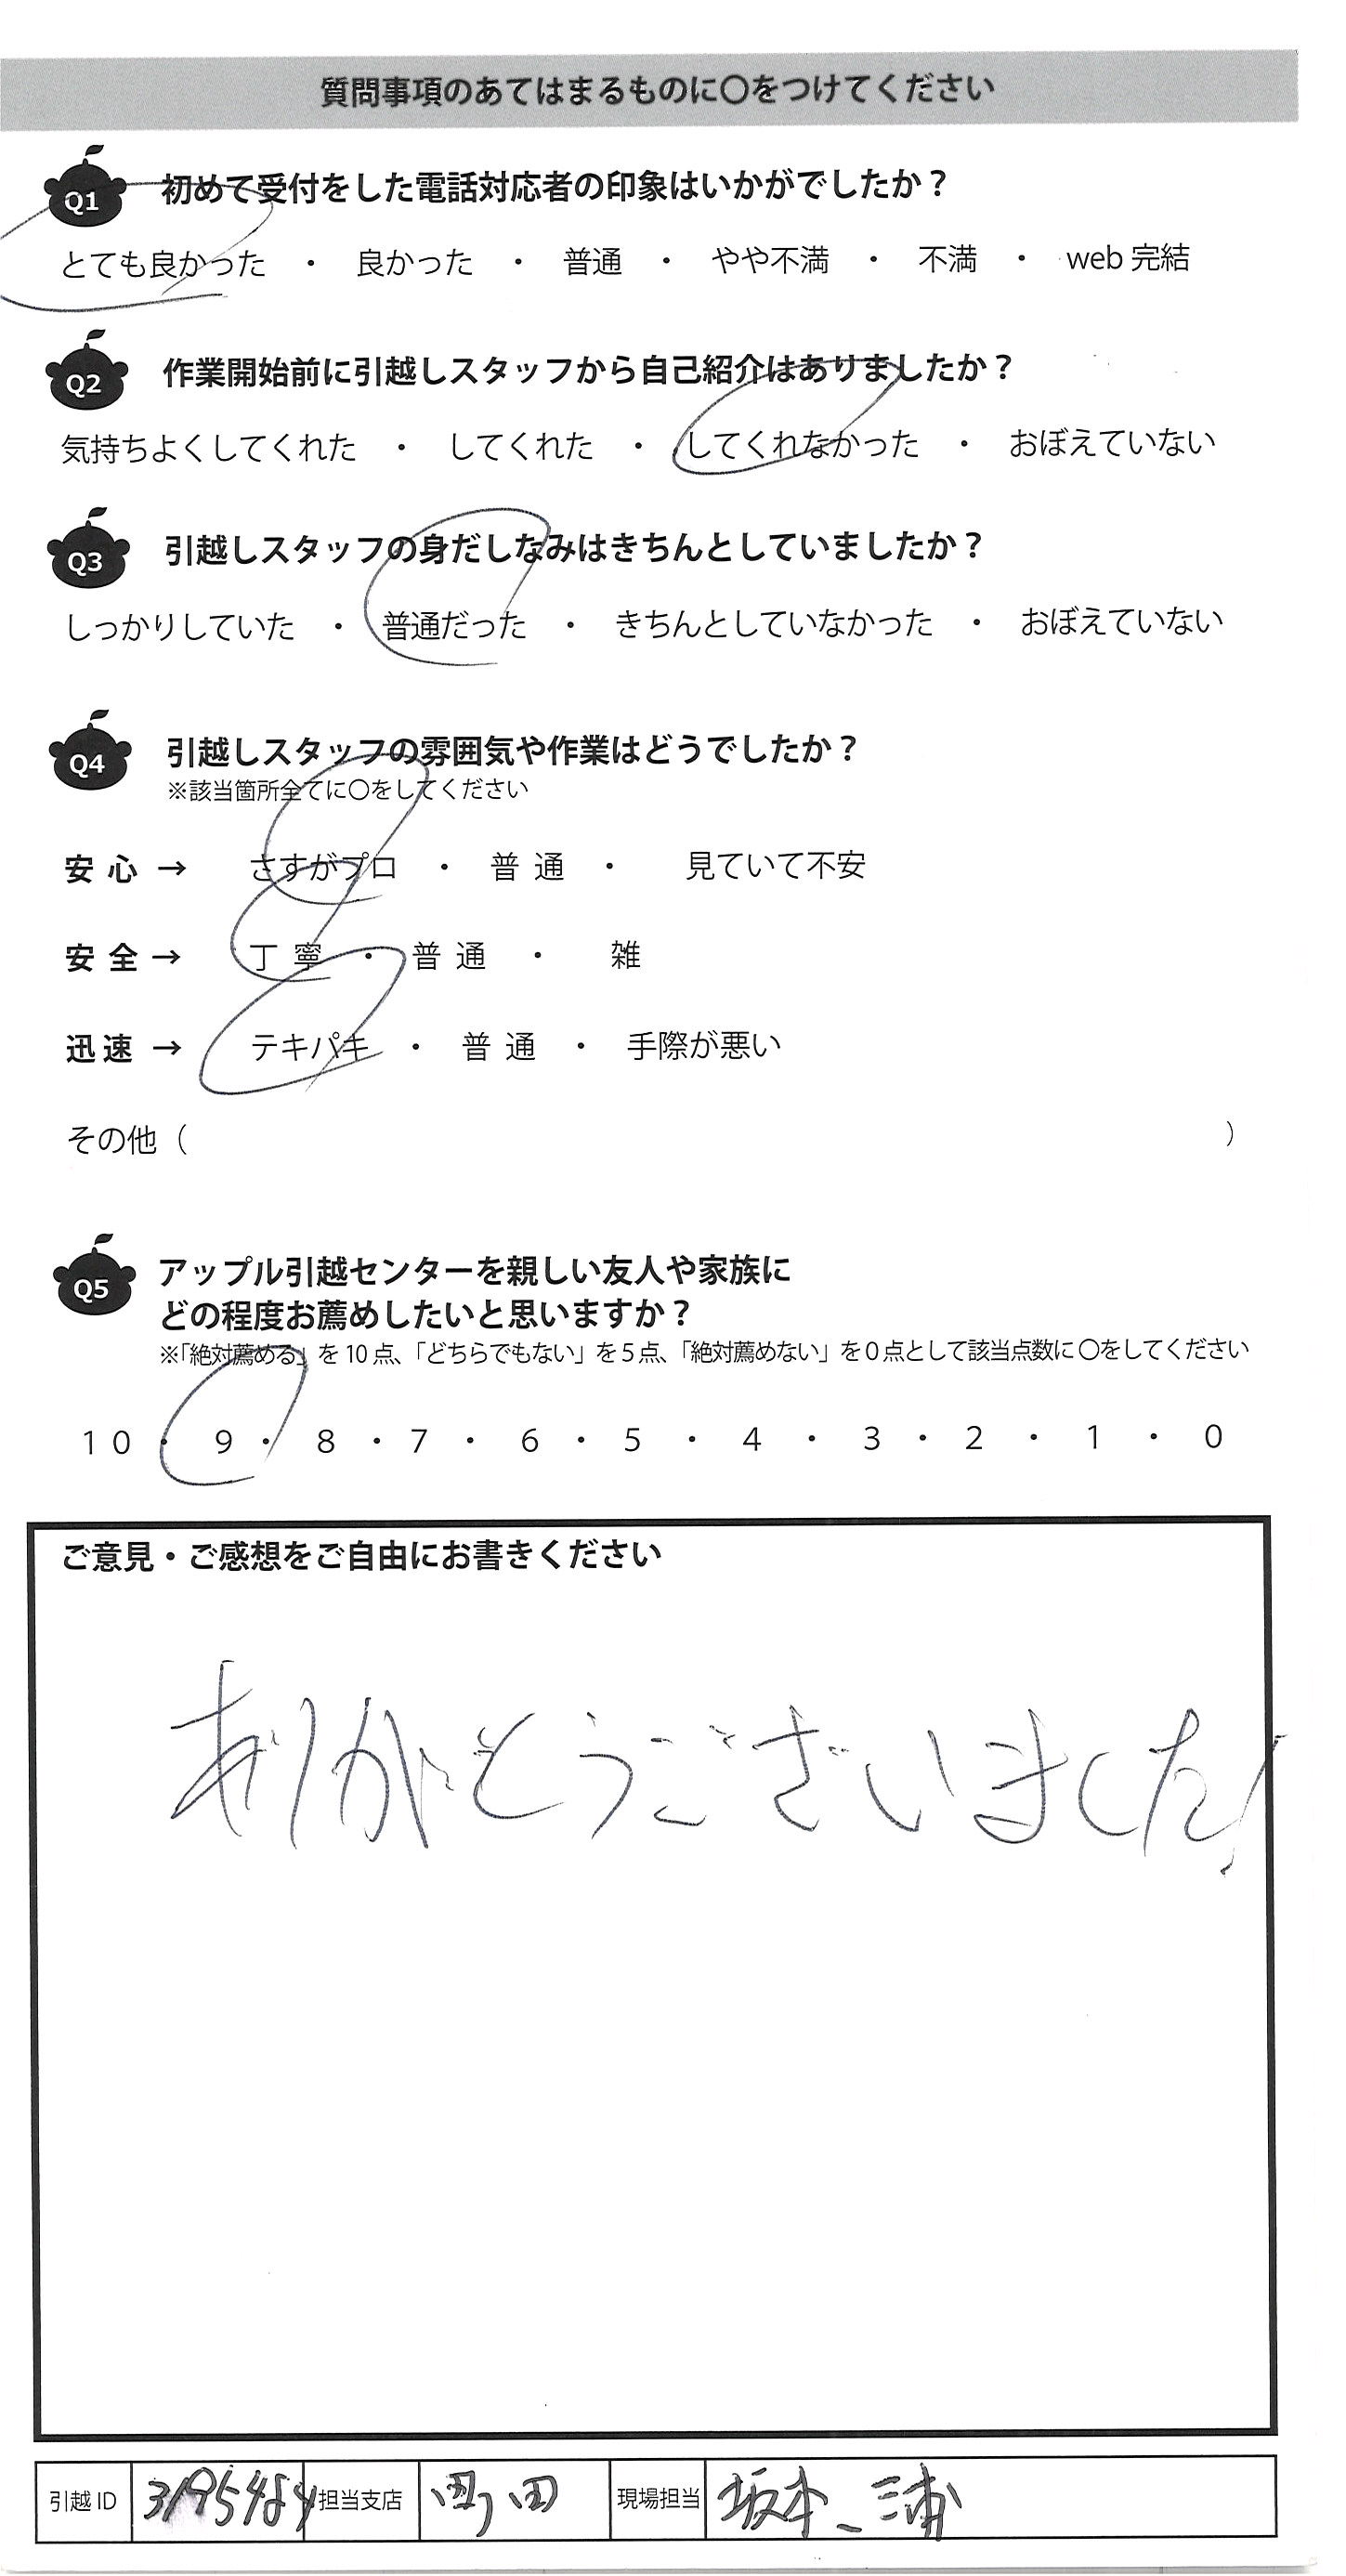 質問事項のあてはまるものに〇をつけてください
Q1 初めて受付をした電話対応者の印象はいかがでしたか？
とても良かった ・ 良かった ・ 普通 ・ やや不満 ・ 不満 ・ web 完結
Q2 作業開始前に引越しスタッフから自己紹介はありましたか？
気持ちよくしてくれた ・ してくれた ・ してくれなかった ・ おぼえていない
Q3 引越しスタッフの身だしなみはきちんとしていましたか？
しっかりしていた ・ 普通だった ・ きちんとしていなかった ・ おぼえていない
Q4 引越しスタッフの雰囲気や作業はどうでしたか？
※該当箇所全てに〇をしてください
安心 → さすがプロ ・ 普通 ・ 見ていて不安
安全 → 丁寧 ・ 普通 ・ 雑
迅速 → テキパキ ・ 普通 ・ 手際が悪い
その他（ ）
Q5 アップル引越センターを親しい友人や家族に
どの程度お薦めしたいと思いますか？
※「絶対薦める」を10点、「どちらでもない」を5点、「絶対薦めない」を0点として該当点数に〇をしてください
10 ・ 9 ・ 8 ・ 7 ・ 6 ・ 5 ・ 4 ・ 3 ・ 2 ・ 1 ・ 0
ご意見・ご感想をご自由にお書きください
ありがとうございました!
引越ID 担当支店 町田 現場担当 坂本 三浦